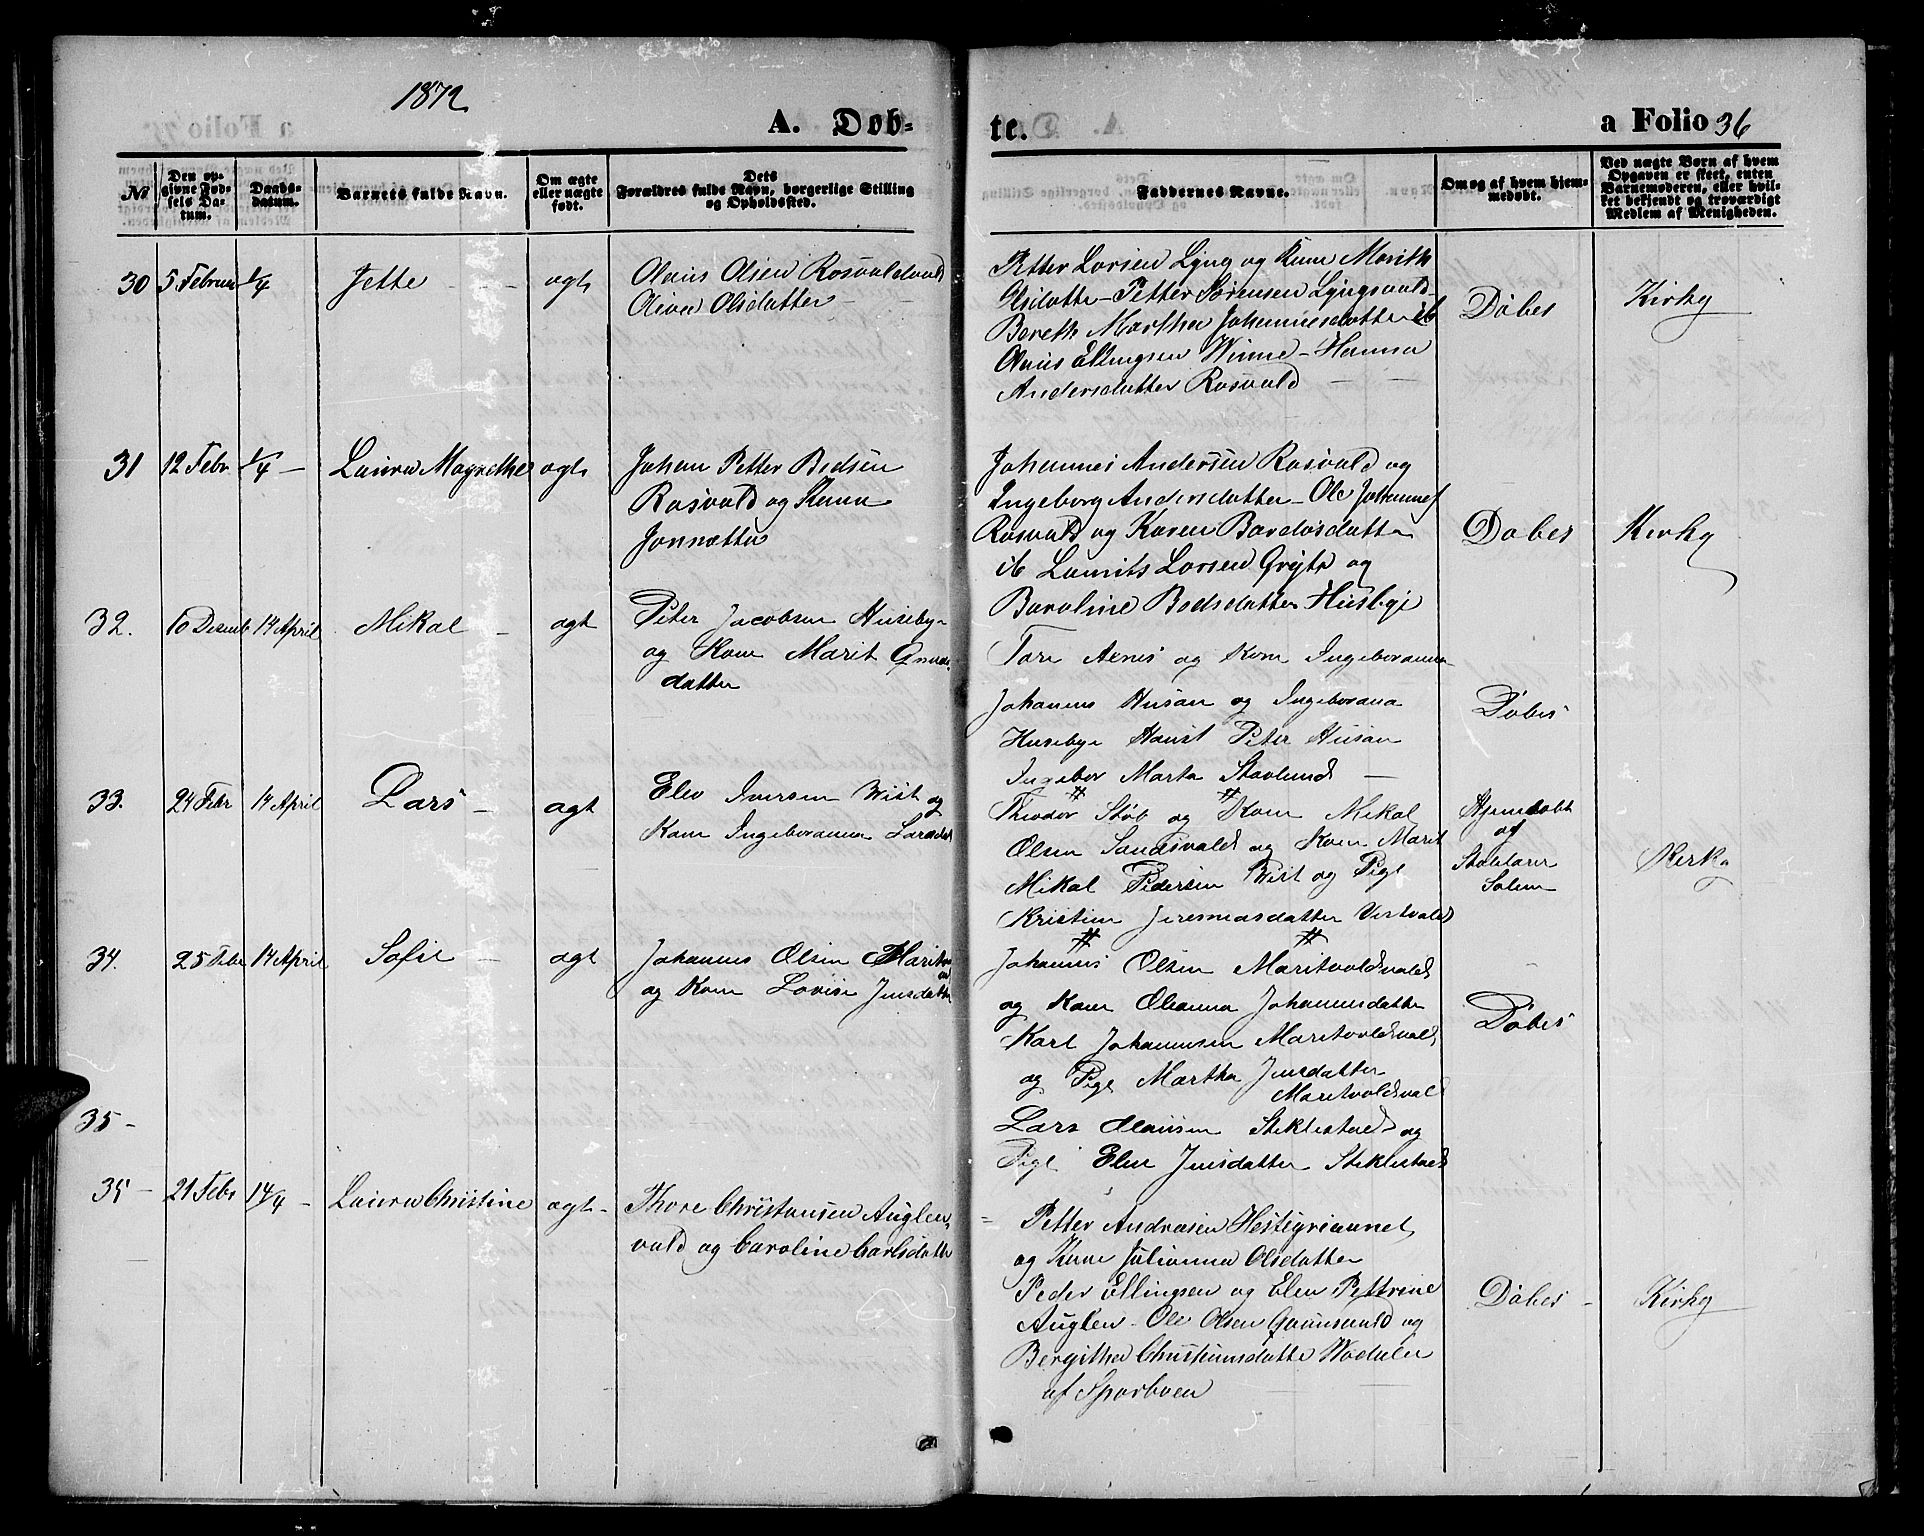 1872
A. Døb-
te.
a Folio 36
№
Den op-
givne Fød-
sels Da-
tum.
Daabs-
datum.
Barnets fulde Navn.
Om ægte
eller uægte
født.
Dets
Forældres fulde Navn, borgerlige Stilling
og Opholdssted.
Faddernes Navne.
Om og af hvem hjem-
medøbt.
Ved uægte Børn af hvem
Opgaven er skeet, enten
Barnemoderen, eller hvil-
ket bekjendt og troværdigt
Medlem af Menigheden.
30 5 Februar 1/4 Jette agte Olaus Olsen Rosvaldvald
Olsdatter
Petter Larsen Lyng og Kune Marith
Olsdatte - Petter Sørensen Lyngsvald
Bereth Martha Johannesdatter ib
Olaus Ellingsen Winne - Hanna
Andersdatter Rosvald
Døbes Kirky
31 12 Febr 1/4 Laura Magrethe agte Johan Petter Bedsen
Rosvald og Kune
Johannes Andersen Rosvald og
Ingeborg Andersdatter - Ole Johannes
Rosvald og Karen Bardosdatter
ib Larsen og
Baroline Bodsdatter Husbye
Døbes Kirky
32. 10 Desemb 14 April Mikal agt Peter Jacobsen Huseby
og Kone Marit
datter
Tore Aenes og Kone Ingeboranna
Johanns Husan og Ingeborana
Husebye Peter Husan
Ingebor Marta Stavlund
Døbes
33. 24 Febr 14 April Lars agt Elev Iversen Wist og
Kone Ingeboranna
Theodor Støb og Kone Mikal
Olsen Sandsvald og Kone Marit
Mikal Pedersen Wist og Pige
Kristine Jeremiasdatter Vestvald
Hjemdøbt
af
Skolelærer
Solem
Kirky
34. 25 Febr 14 April Sofie agt Johannes Olsen Maritvo
og Kone Lovise Jensdatter
Johannes Olsen Maritvoldsvald
og Kone Oleanna Johannesdatter
Karl Johannesen Maritvoldsvald
og Pige Martha Jensdatter
Maritvoldsvald
Døbes
35 -
Lars Olausen Stiklestad og
Pige Elen Jensdatter Stiklestad
35 - 21 Febr 14/4 - Laura Christine agt - Thore Christansen Auglen
vald og Caroline Carlsdatter
Petter Andreasen Hestegriaunet
og Kune Julianna Olsdatter
Peder Ellingsen og Elen Pettrine
Auglen - Ole Olsen og
Bergitha Christiansdatte Wodalen
af Sparboen
Døbes - Kirky